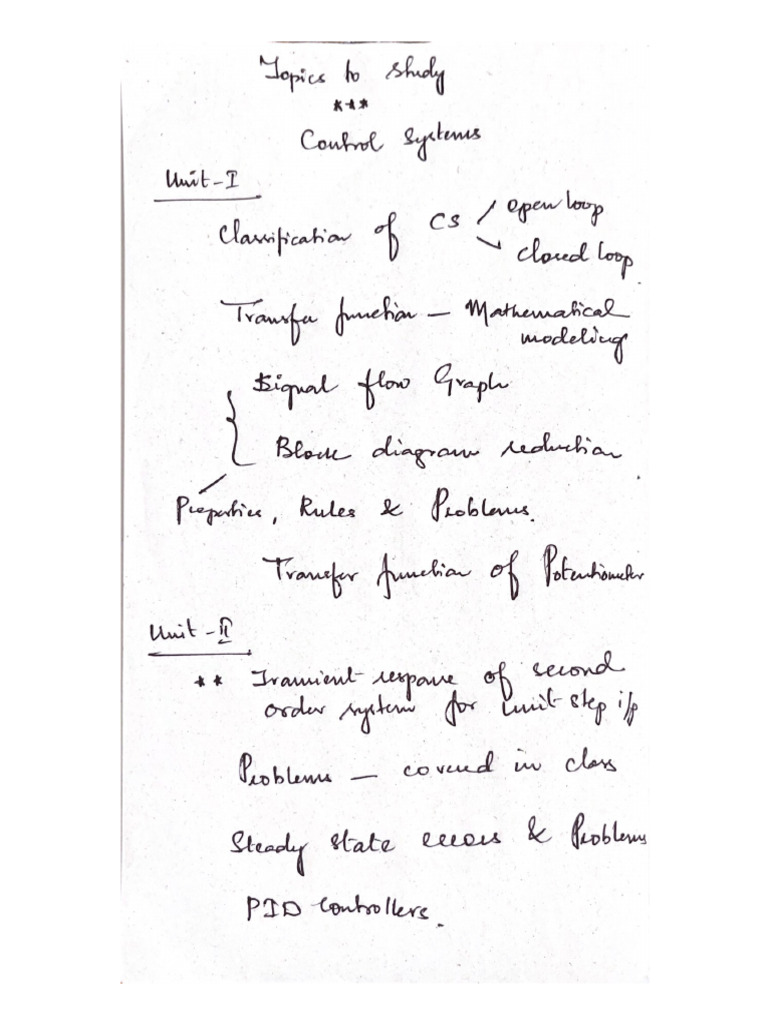 Topics to study
***
Control Systems
Unit-I
Classification of CS
open loop
closed loop
Transfer function - Mathematical
modeling
Signal flow Graph
Block diagram reduction
Properties, Rules & Problems.
Transfer function of Potentiometer
Unit-II
** Transient response of second
order system for unit step i/p
Problems - covered in class
Steady state errors & Problems
PID controllers.